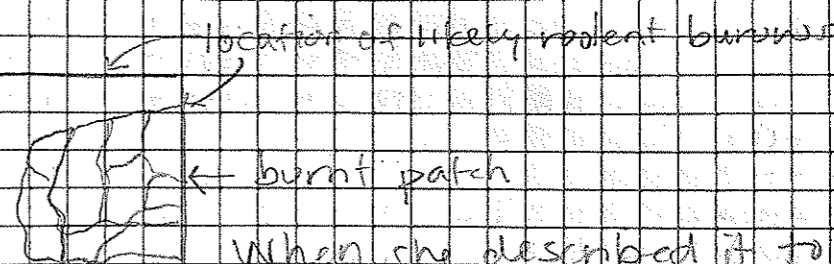 location of likely rodent burrows
burnt patch
When she described it to